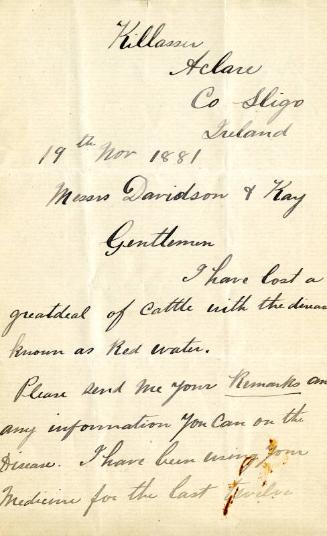 Killasser
Aclare
Co Sligo
Ireland
19th Nov 1881
Messrs Davidson & Kay
Gentlemen
I have lost a
greatdeal of cattle with the disease
known as Red water.
Please send me your Remarks an
any information you can on the
Disease. I have been using your
Medicine for the last twelve